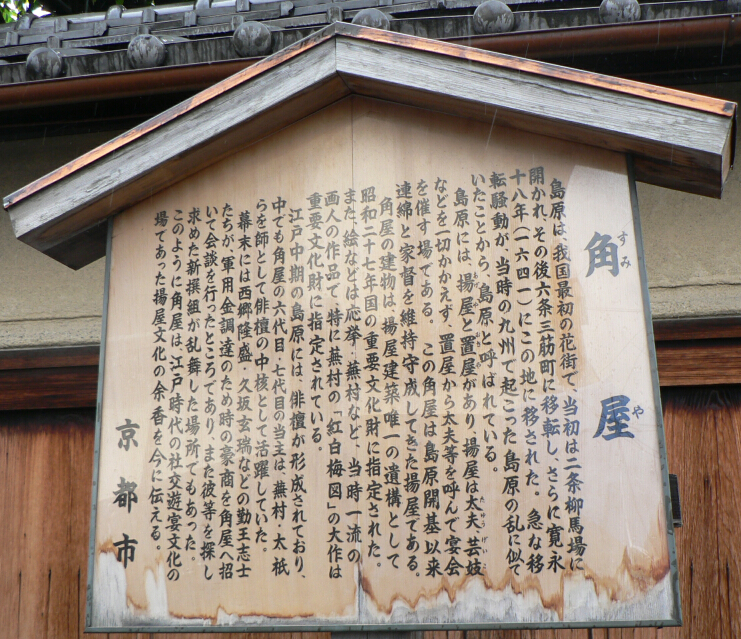 角屋
すみ
や
島原は、我国最初の花街で、当初は二条柳馬場に
開かれ、その後六条三筋町に移転し、さらに寛永
十八年(一六四一)にこの地に移された。急な移
転騒動が、当時の九州で起こった島原の乱に似て
いたことから、島原と呼ばれている。
島原には、揚屋と置屋があり、揚屋は太夫・芸妓
などを一切かかえず、置屋から太夫等を呼んで宴会
を催す場である。この角屋は島原開基以来
連綿と家督を維持、守成してきた揚屋である。
角屋の建物は、揚屋建築唯一の遺構として
昭和二十七年国の重要文化財に指定された。
また、絵などは応挙・蕪村など、当時一流の
画人の作品で、特に蕪村の「紅白梅図」の大作は
重要文化財に指定されている。
江戸中期の島原には、俳壇が形成されており、
中でも角屋の六代目・七代目の当主は、蕪村・太祇
らを師として俳壇の中核として活躍していた。
幕末には西郷隆盛・久坂玄瑞などの勤王志士
たちが、軍用金調達のため時の豪商を角屋へ招
いて会談を行ったところであり、また彼等を探し
求めた新撰組が乱舞した場所でもあった。
このように角屋は、江戸時代の社交遊宴文化の
場であった揚屋文化の余香を今に伝える。
京都市